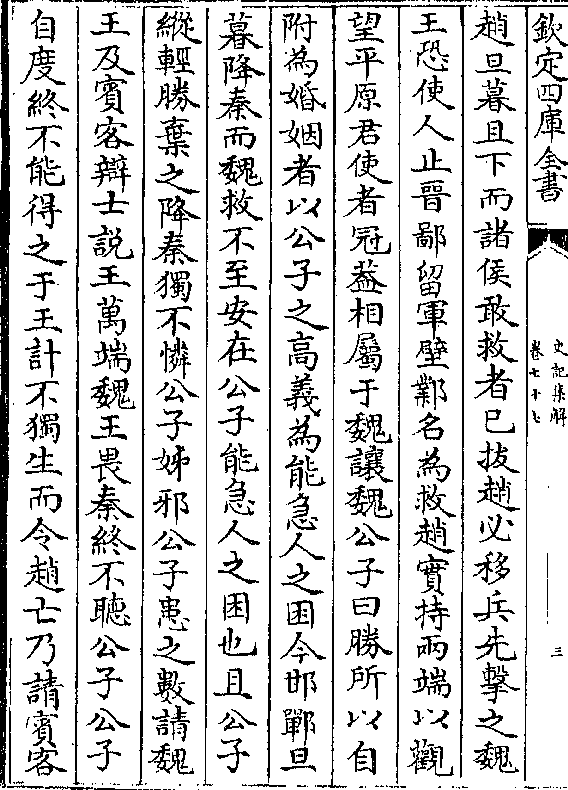 欽定四庫全書
史記集解
卷七十七
三
趙旦暮且下而諸侯敢救者已拔趙必移兵先擊之魏
王恐使人止晉鄙留軍壁鄴名為救趙實持兩端以觀
望平原君使者冠葢相屬于魏讓魏公子曰勝所以自
附為婚姻者以公子之髙義為能急人之困今邯鄲旦
暮降秦而魏救不至安在公子能急人之困也且公子
縱輕勝棄之降秦獨不憐公子姊邪公子患之數請魏
王及賓客辯士說王萬端魏王畏秦終不聽公子公子
自度終不能得之于王計不獨生而令趙亡乃請賓客